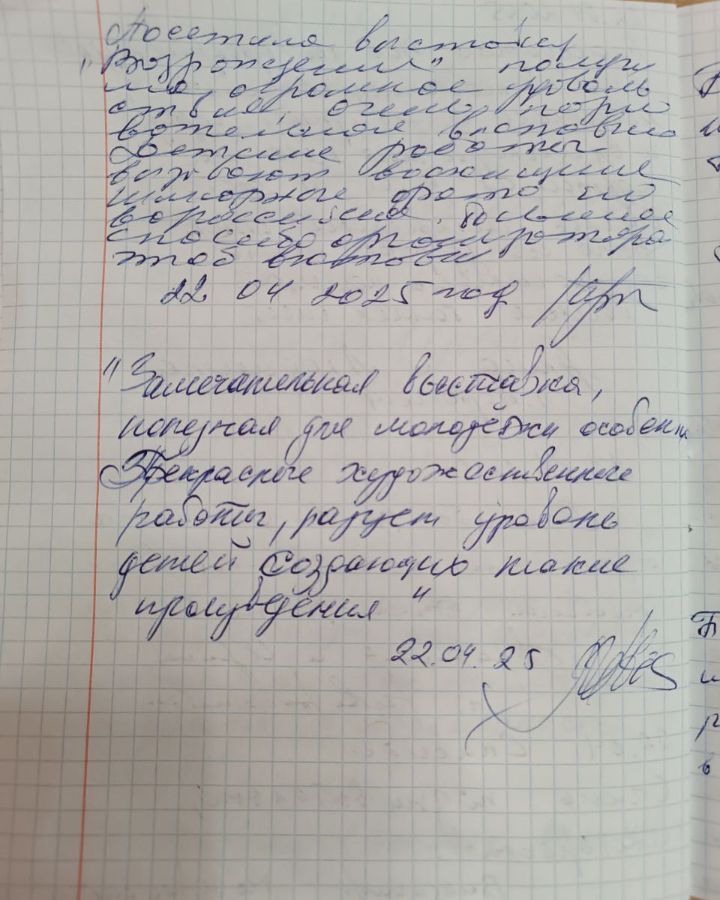 Посетила выставку
"Возрождение" получи
ла огромное удоволь
ствие, очень позно
вательная выставка
Детские работы
вызывают восхищение
шикарные фото
Большое
спасибо организатора
этой выставки
22 04 2025 год
"Замечательная выставка,
полезная для молодёжи особенно
Прекрасные художественные
работы, радует уровень
детей создающих такие
произведения"
22.04.25